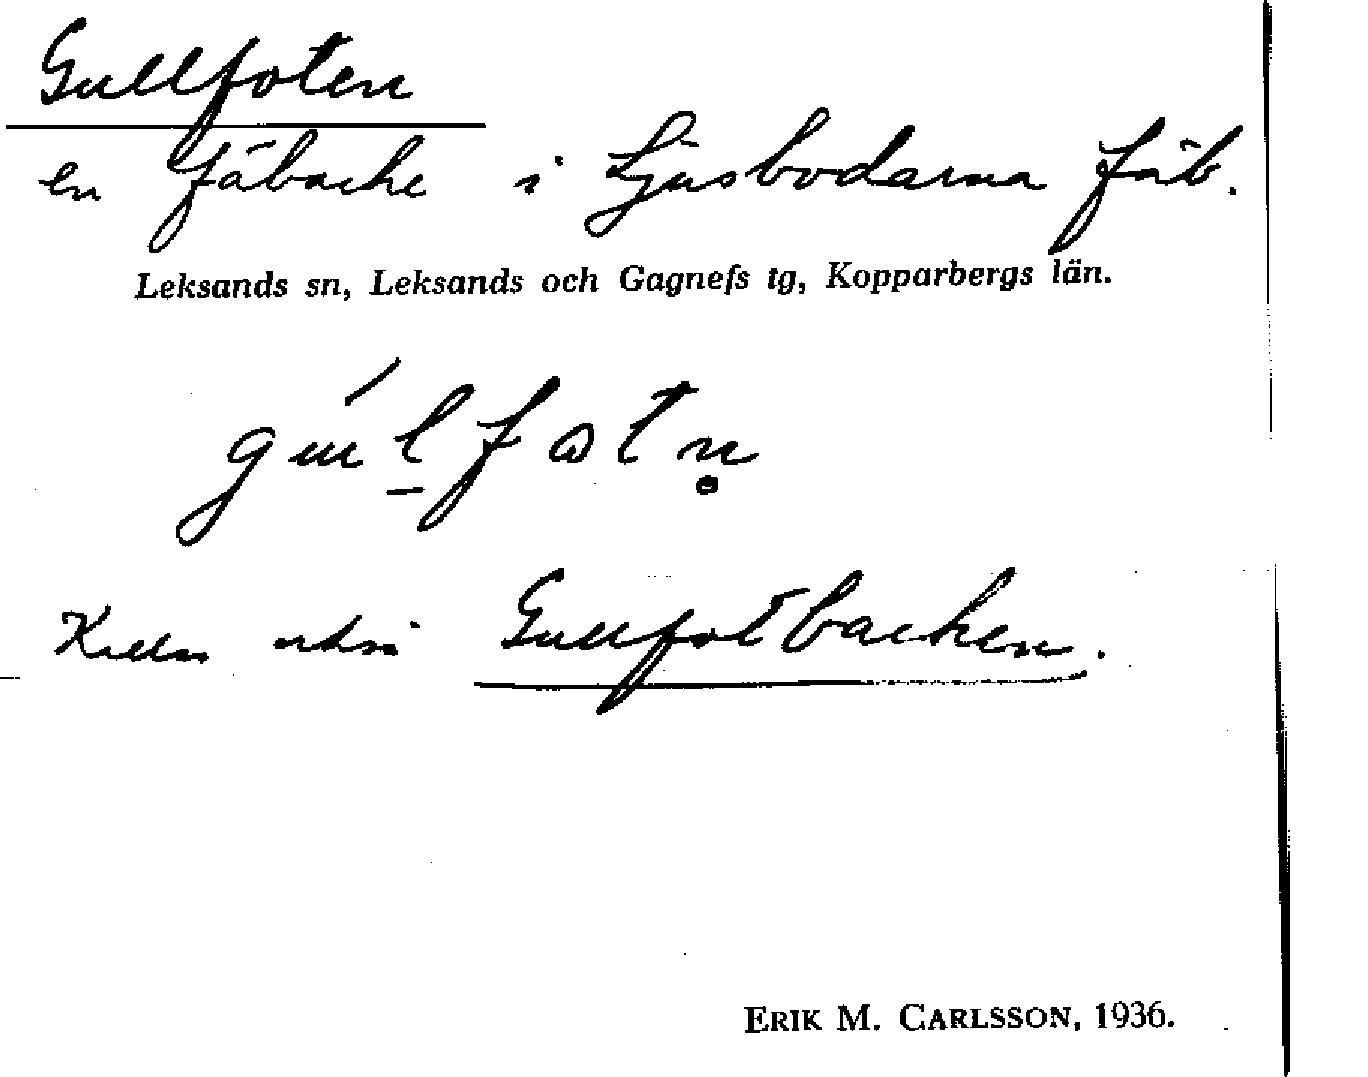 Gullfoten
en fäbacke i Ljusbodarna fäb.
Leksands sn, Leksands och Gagnefs tg, Kopparbergs län.
Kallas också Gullfotbacken.
ERIK M. CARLSSON, 1936.